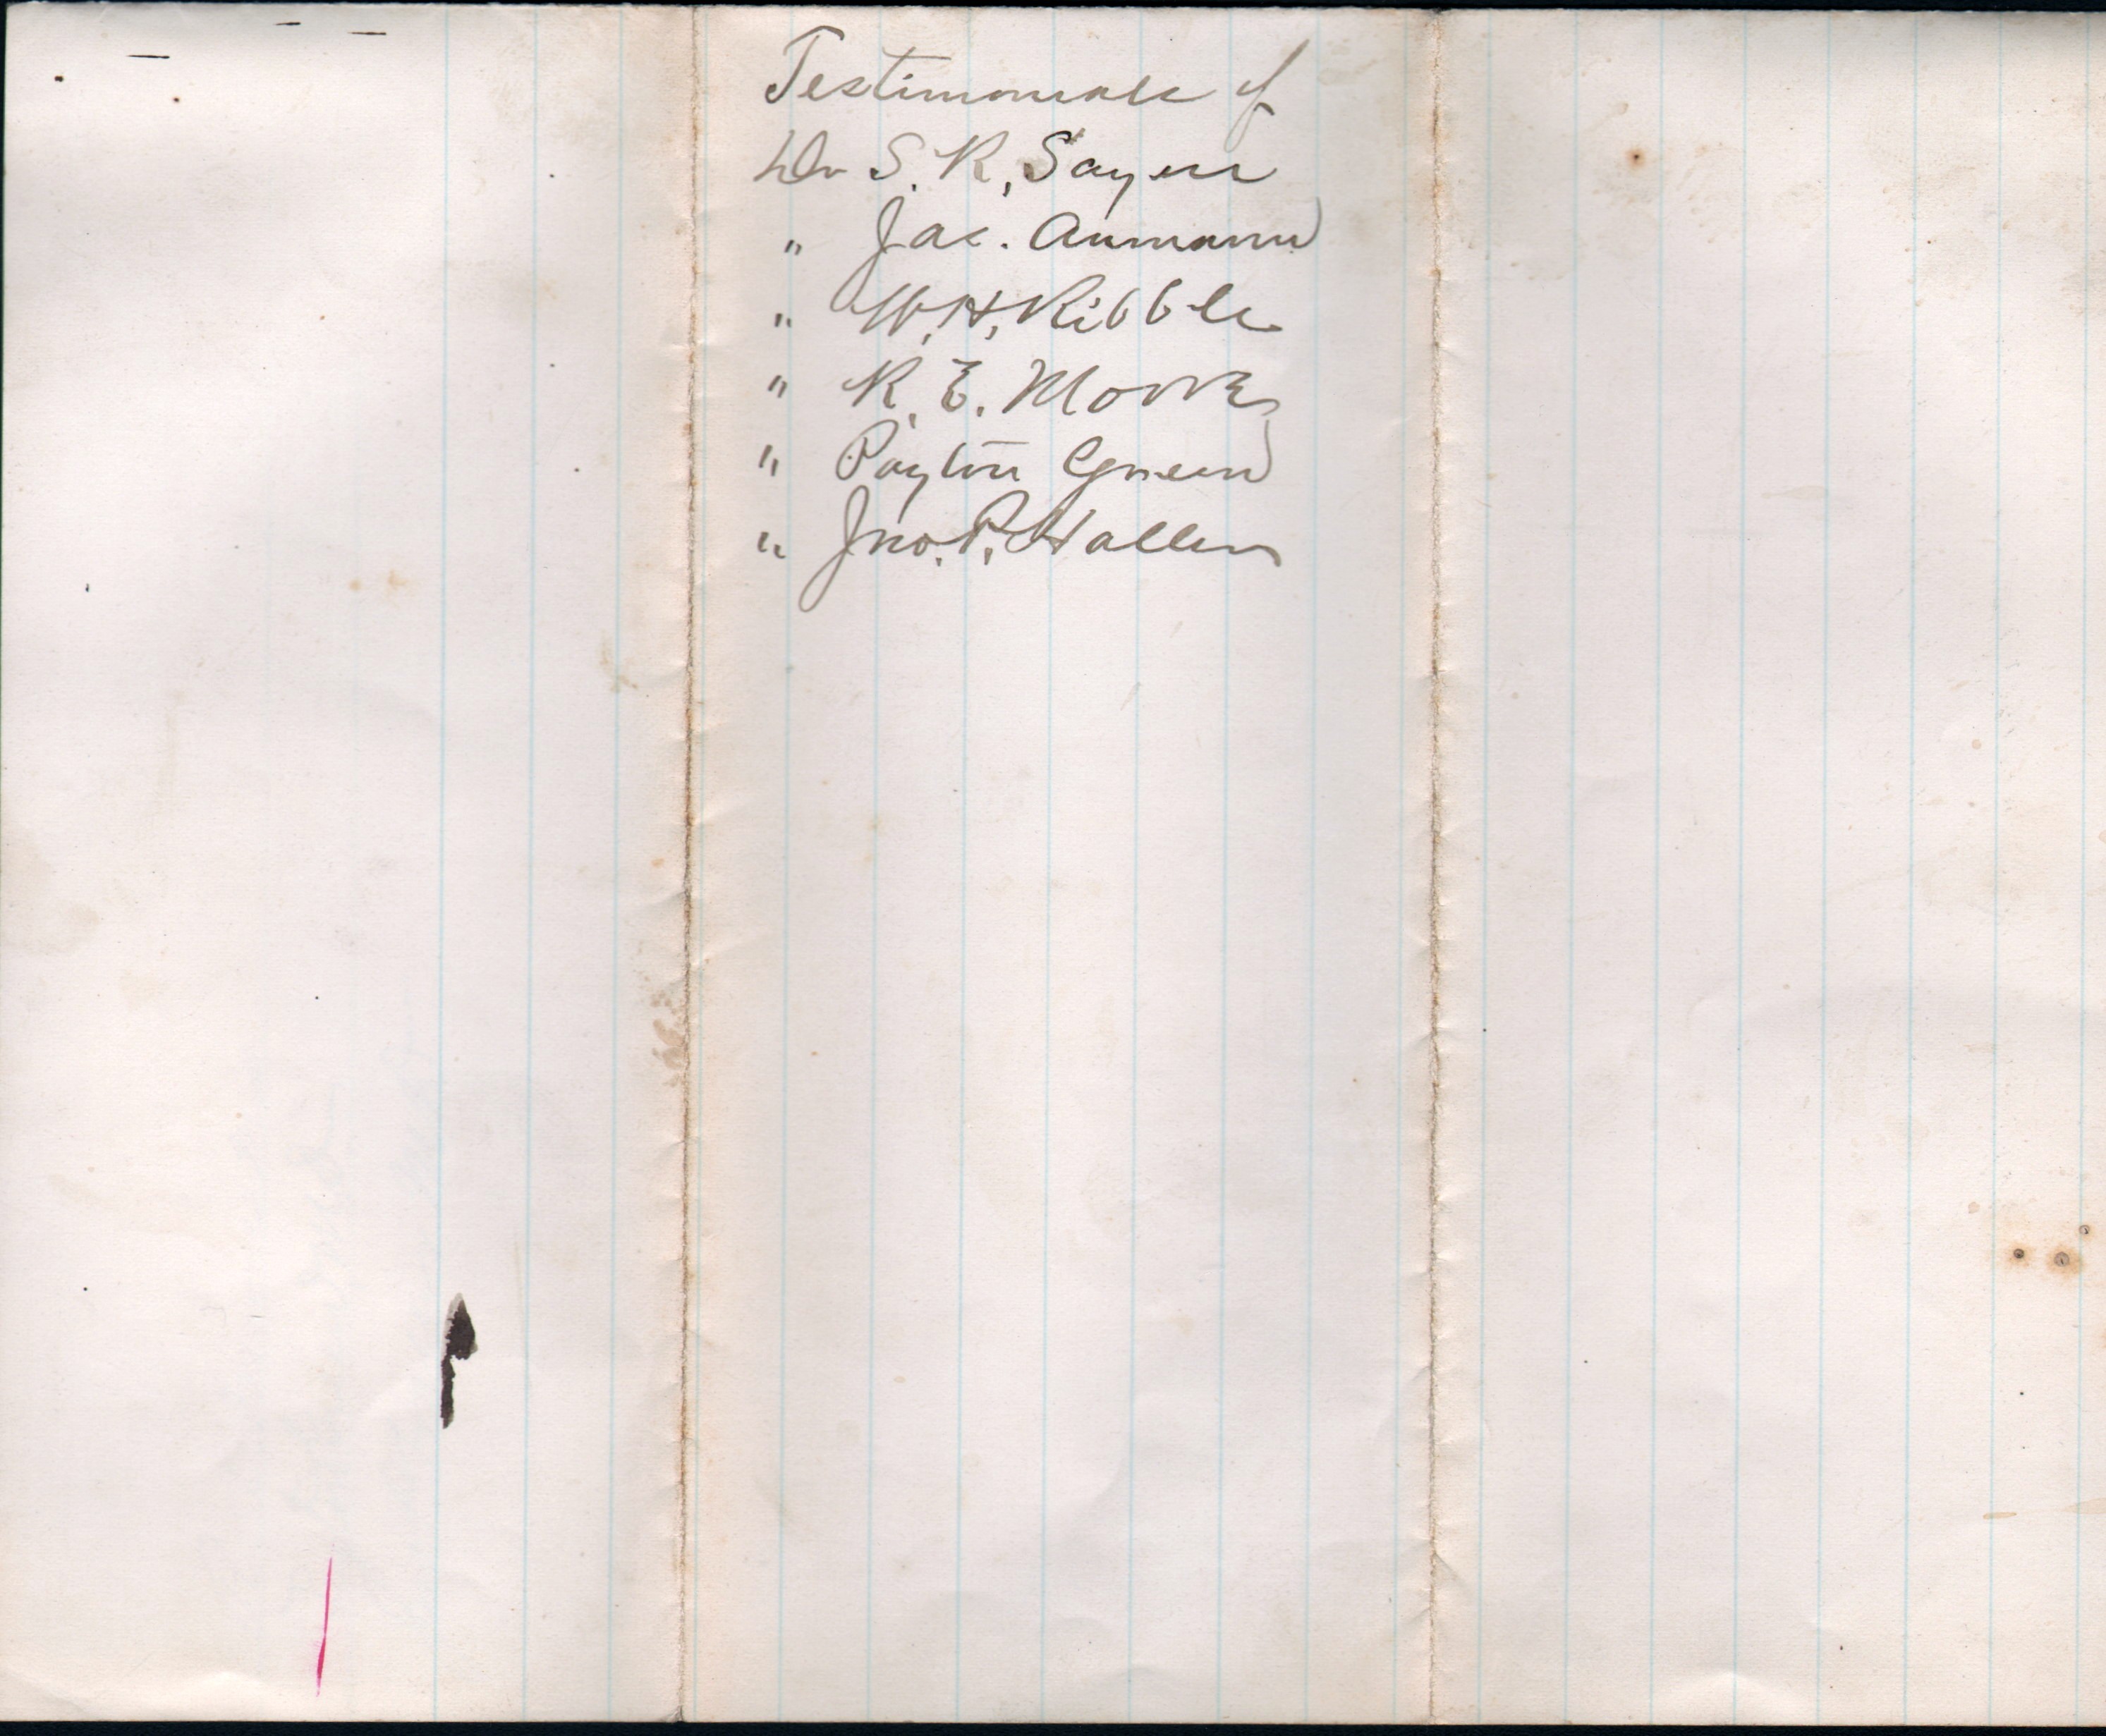 Testimonials of
Dr S. R. Sayers
" Jas.
" W. H. Ribble
" R. E. Moore
" Payton Green
" Jno. P. Haller